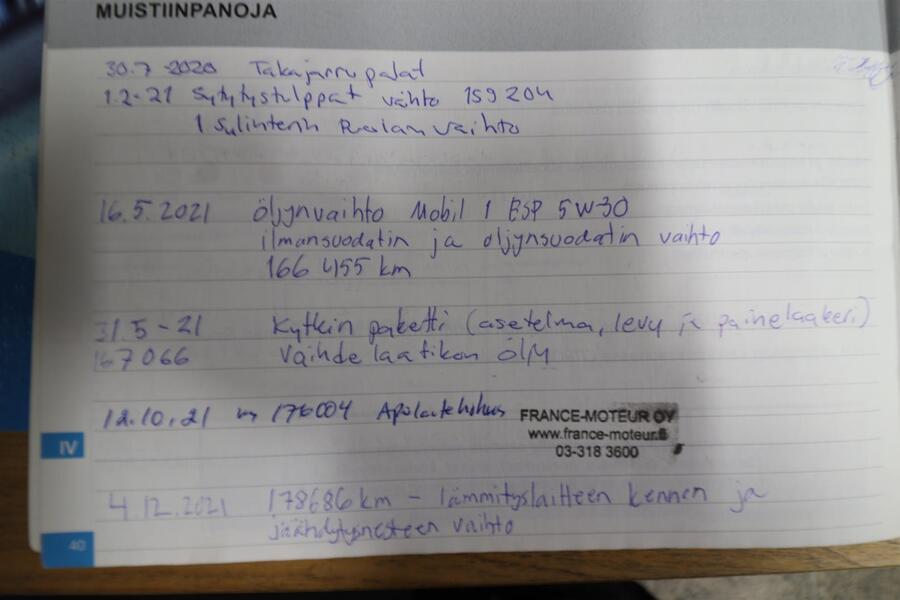 MUISTIINPANOJA
30.7 2020 Takajarrupalat
1.2-21 Sytytystulppat vaihto 159204
1 Sylinterin Puolan vaihto
16.5.2021 öljynvaihto Mobil 1 ESP 5W30
ilmansuodatin ja öljynsuodatin vaihto
166 455 km
31.5-21 Kytkin paketti (asetelma, levy ja painelaakeri)
167066 Vaihdelaatikon öljy
12.10.21 176004
FRANCE-MOTEUR OY
www.france-moteur.fi
03-318 3600
IV
4.12.2021 178686km - lämmityslaitteen kennen ja
jäähdytysnesteen vaihto
40